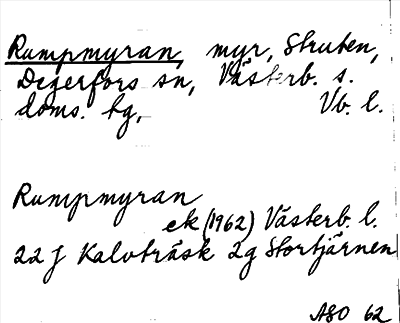 Rumpmyran, myr, Struten,
Degerfors sn, Västerb. s.
doms. tg, Vb. l.
Rumpmyran
ek (1962) Västerb. l.
22 J Kalvträsk 2g Stortjärnen
ASO 62